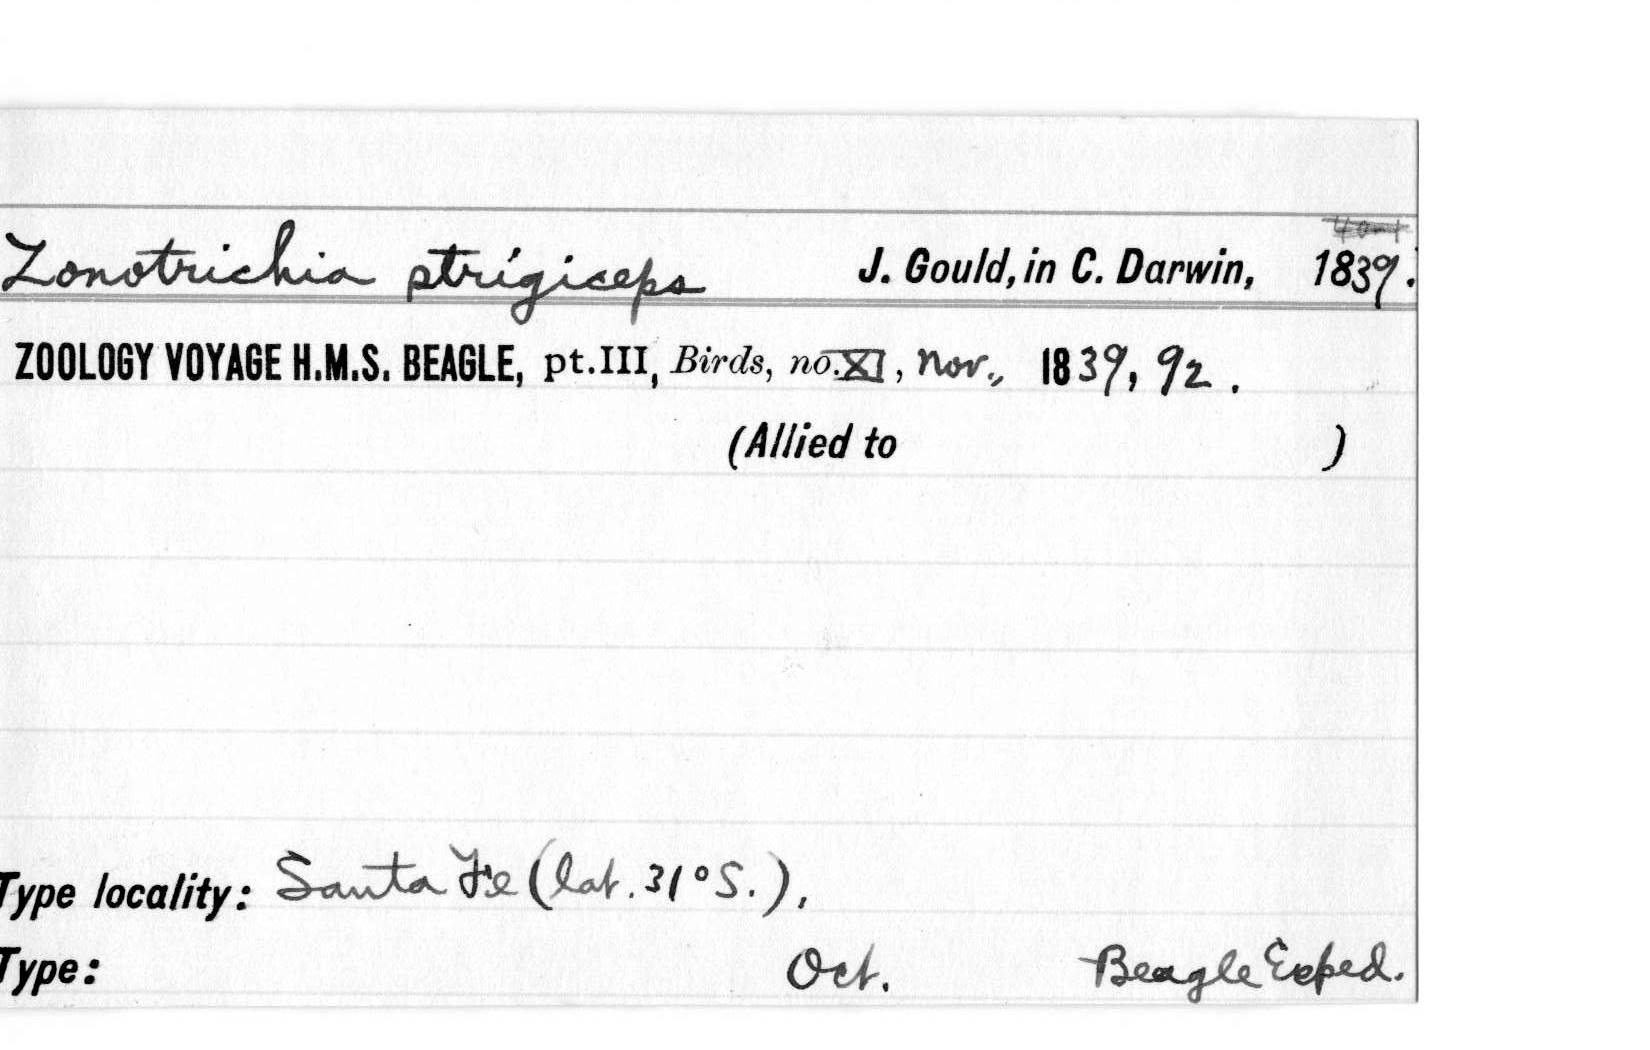 Zonotrichia strigiceps J. Gould, in C. Darwin, 1839.
ZOOLOGY VOYAGE H.M.S. BEAGLE, pt.III, Birds, no.XI, Nov., 1839, 92.
(Allied to )
Type locality: Santa Fe (lat. 31° S.),
Type: Oct. Beagle Exped.